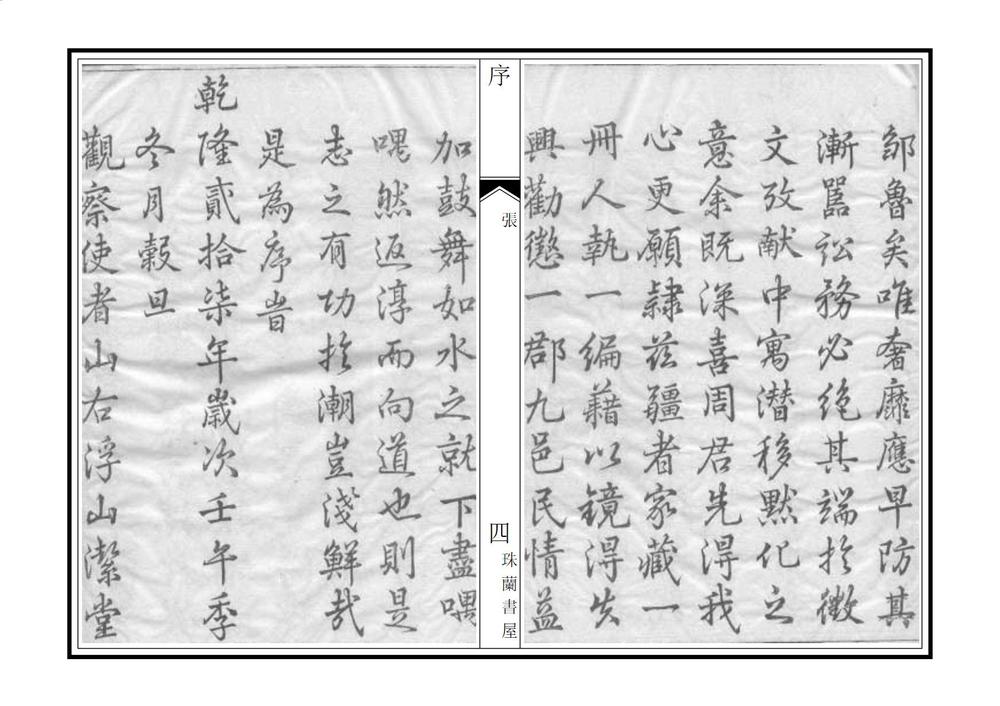 鄒魯矣唯奢靡應早防其
漸嚣訟務必絶其端扵微
文攷献中寓潜移默化之
意余既深喜周君先淂我
心更願隷兹疆者家藏一
冊人執一编藉以鏡淂失
興勸懲一郡九邑民情益
序
張
四
珠蘭書屋
加鼓舞如水之就下盡喁
喁然返淳而向道也則是
志之有功扵潮豈淺鮮哉
是為序旹
乾隆貳拾柒年歲次壬午季
冬月穀旦
觀察使者山右浮山潔堂